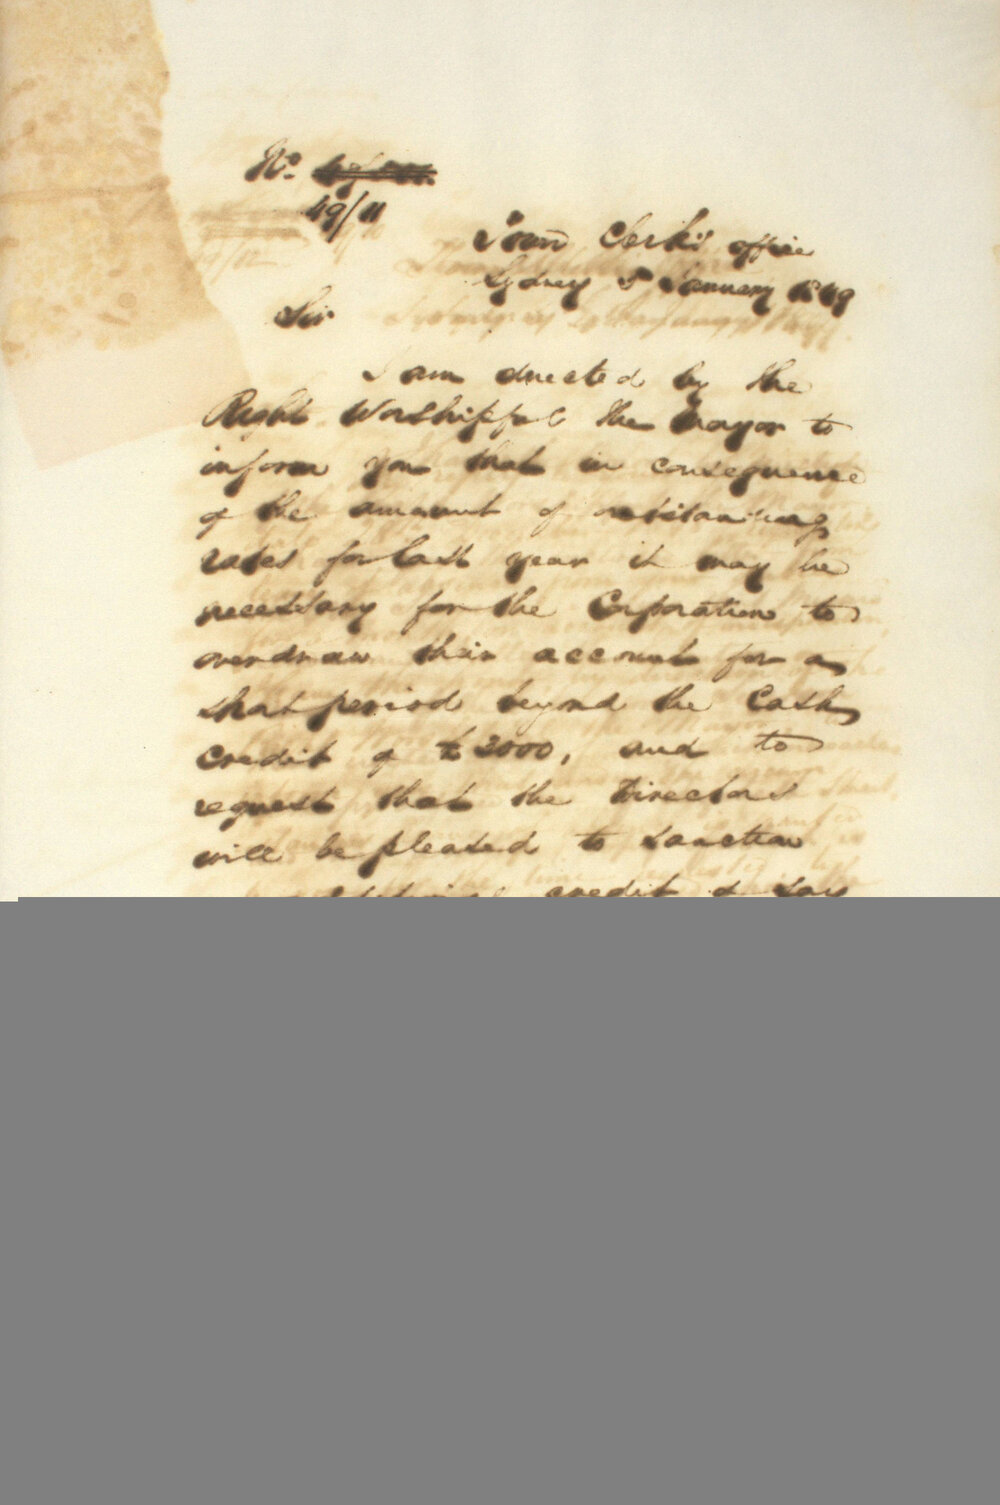 No.
49/11
Town Clerk's office
Sydney 5 January 1849
Sir
I am directed by the
Right Worshipful the Mayor to
inform you that in consequence
of the amount of outstanding
rates for last year it may be
necessary for the Corporation to
overdraw their account for a
short period beyond the Cash
Credit of £2000, and to
request that the Directors
will be pleased to sanction
credit of say